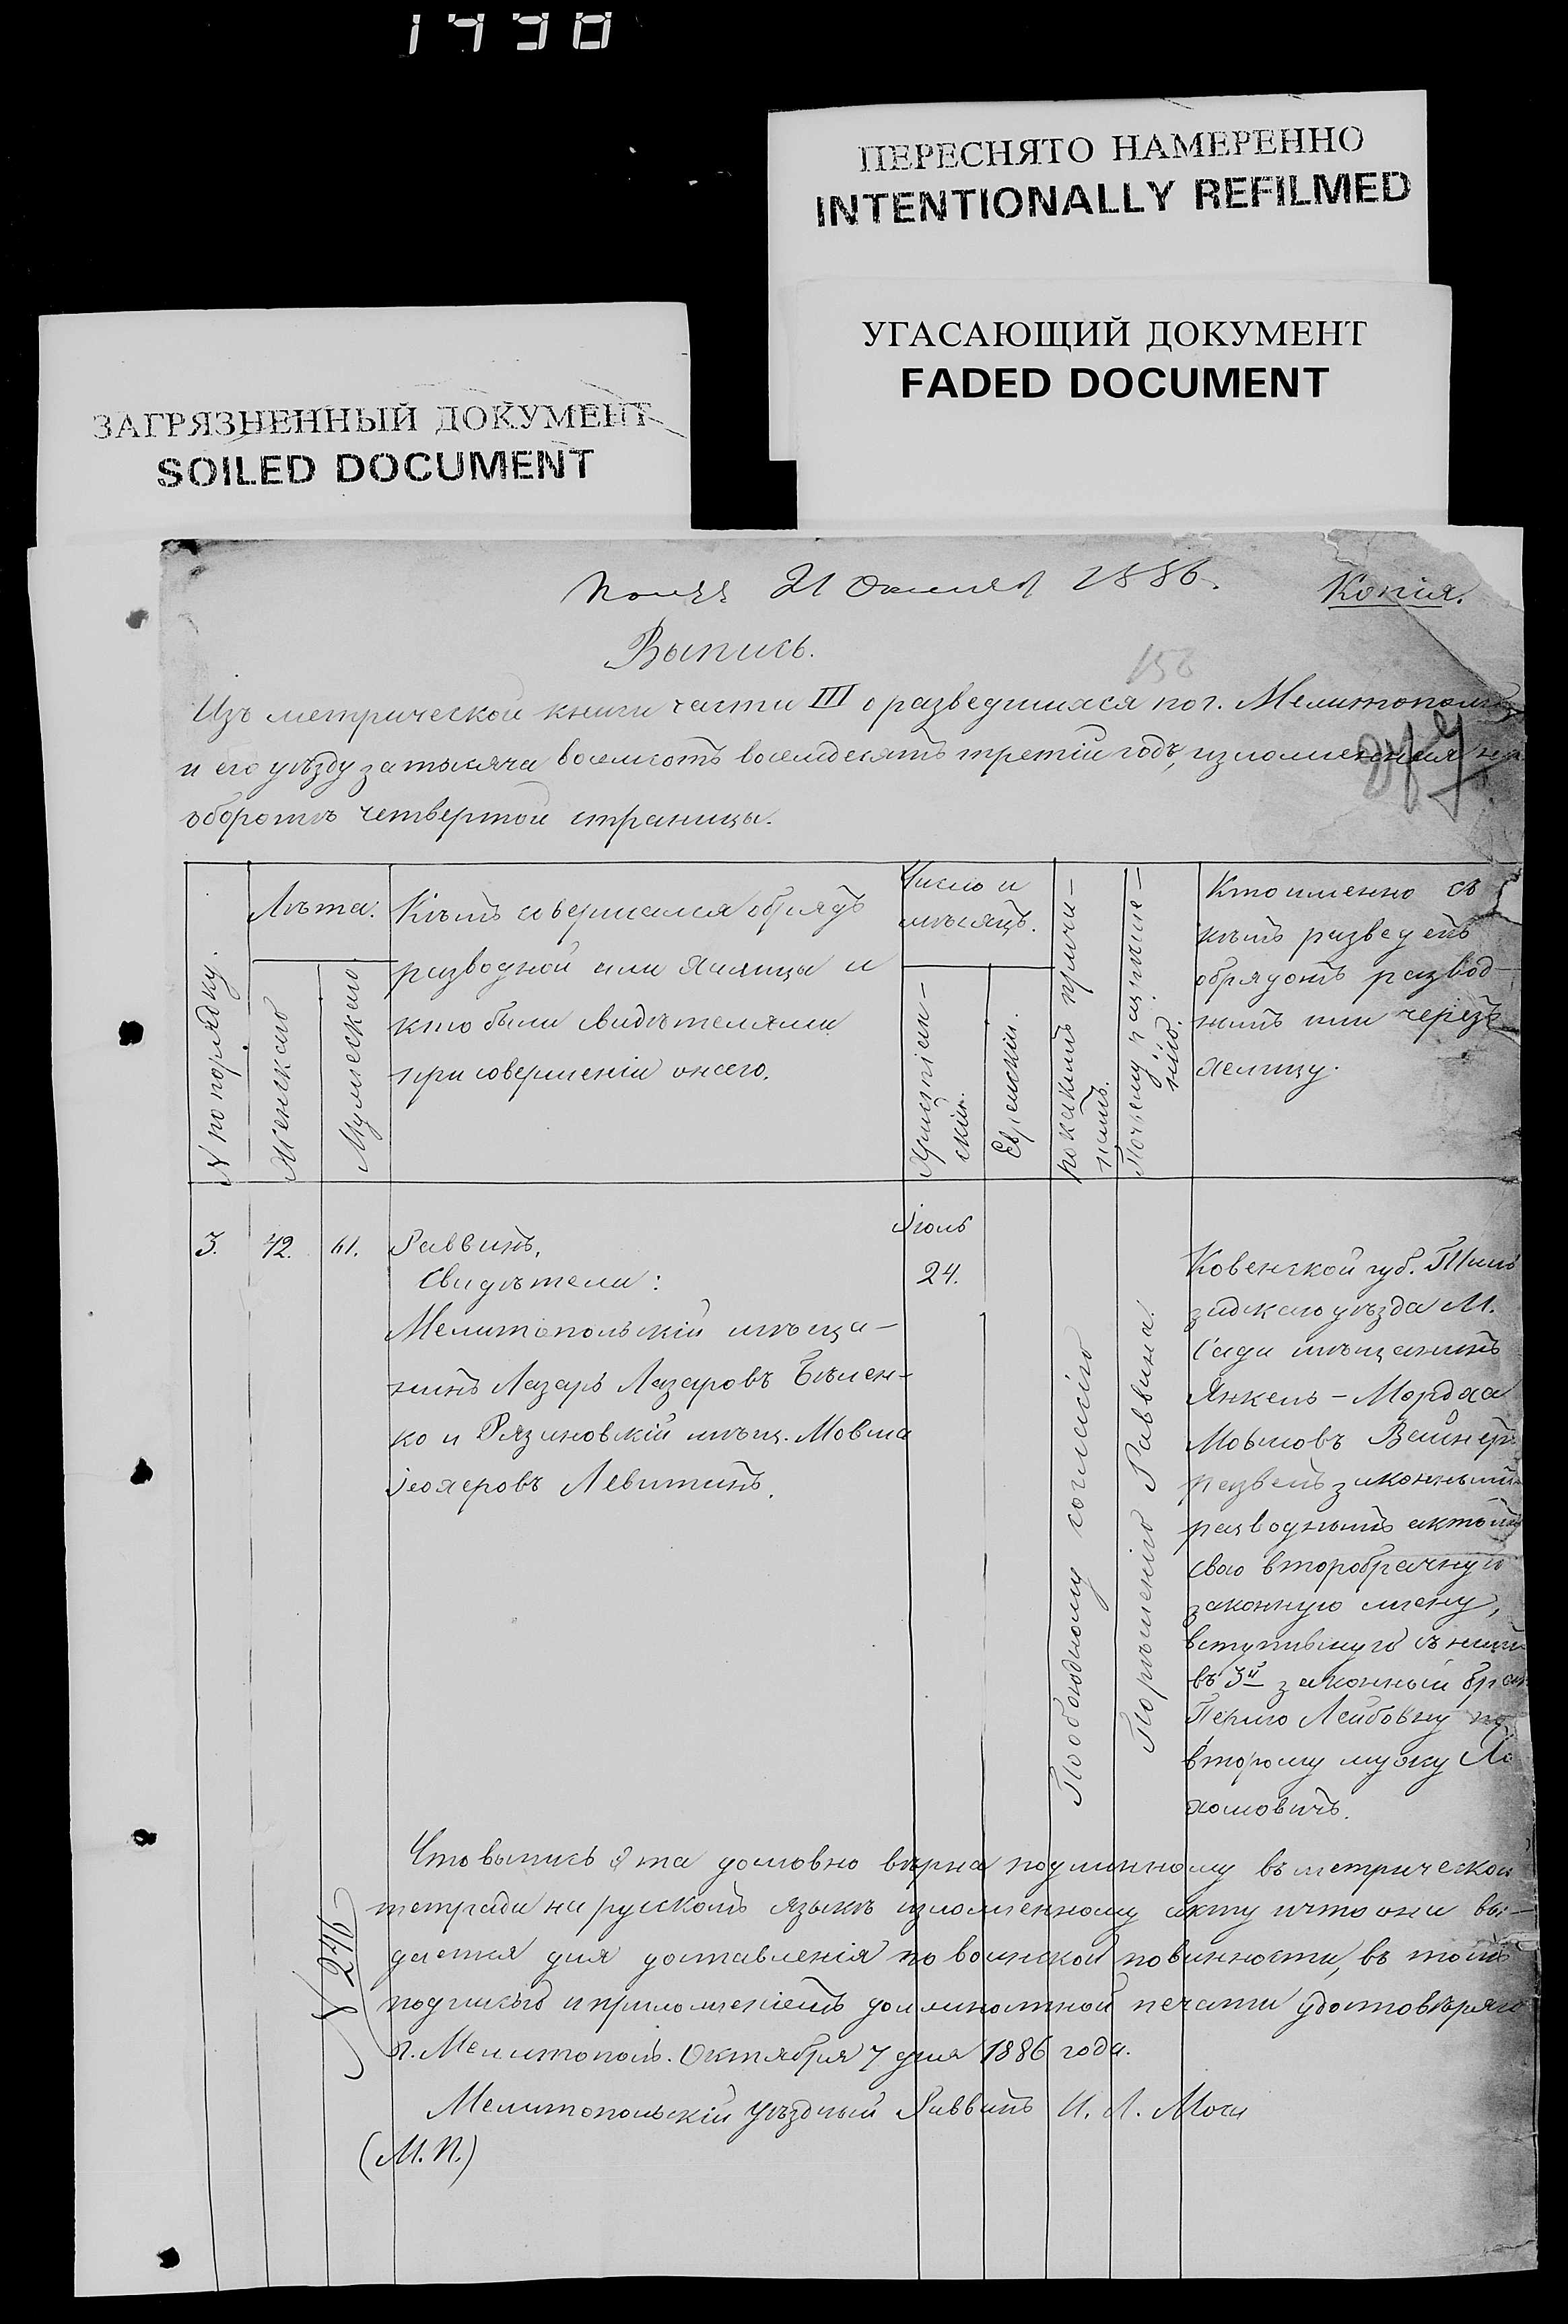 ПЕРЕСНЯТО НАМЕРЕННО
INTENTIONALLY REFILMED
УГАСАЮЩИЙ ДОКУМЕНТ
FADED DOCUMENT
ЗАГРЯЗНЕННЫЙ ДОКУМЕНТ
SOILED DOCUMENT
21 1886.
Копія.
Выпись.
Изъ метрической книги части III о разведшихся по г. Мелитополю
и его уѣзду за тысяча восемсотъ восемдесятъ третій годъ, изложенная на
оборотѣ четвертой страницы.
№ по порядку.
Лѣта.
Женскаго
Мужескаго
Кѣмъ совершался обрядъ
разводной или Халица и
кто были свидѣтелями
при совершеніи онаго.
Число и
мѣсяцъ.
Христіан-
скій.
Еврейскій.
по какимъ причи-
намъ.
Почему
Кто именно съ
кѣмъ разведенъ
обрядомъ развод-
нымъ или черезъ
Халицу.
3.
42.
61.
Раввинъ.
Свидѣтели:
Мелитопольскій мѣща-
нинъ Лазарь Лазаровъ Бѣлен-
ко и мѣщ. Мовша
Левитинъ.
Іюль
24.
По обоюдному согласію
По рѣшенію Раввина.
Ковенской губ.
уѣзда М.
мѣщанинъ
Янкель-Мордха
Мовшовъ
развелъ законнымъ
разводнымъ актомъ
свою второбрачную
законную жену,
вступившую съ нимъ
въ 3й законный бракъ
Лейбовну по
второму мужу
Что выпись эта дословно вѣрна подлинному въ метрической
тетради на русскомъ языкѣ изложенному акту и что она вы-
дается для доставленія по воинской повинности, въ томъ
подписью и приложеніемъ должностной печати удостовѣряю
г. Мелитополь. Октября 7 дня 1886 года.
№ 246
Мелитопольскій Уѣздный Раввинъ И. Л.
(М. П.)